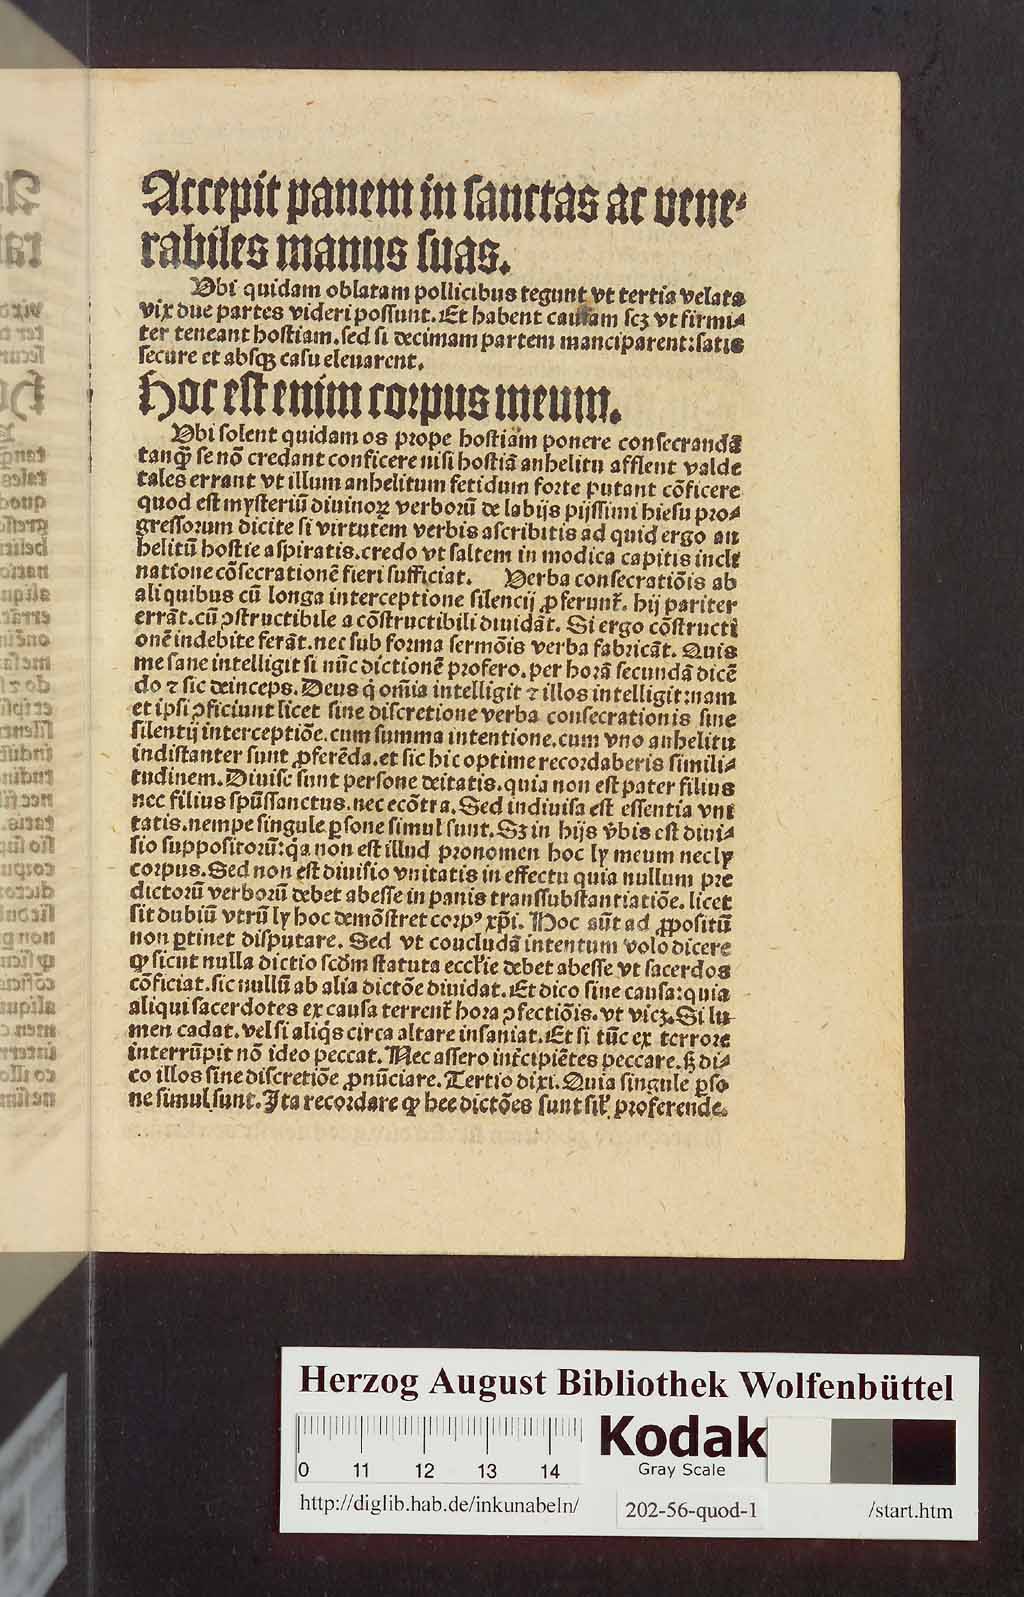 Accepit panem in sanctas ac vene⸗
rabiles manus suas.
Ubi quidam oblatam pollicibus tegunt vt tertia velata
vix due partes videri possunt. Et habent causam scꝫ vt firmi⸗
ter teneant hostiam. sed si decimam partem manciparent: satis
secure et absqꝫ casu eleuarent.
Hoc est enim corpus meum.
Ubi solent quidam os prope hostiam ponere consecrandā
tanqꝫ se nō credant conficere nisi hostiā anhelitu afflent valde
tales errant vt illum anhelitum fetidum forte putant cōficere
quod est mysteriū diuinoꝝ verborū de labijs pijssimi hiesu pro⸗
gressorum dicite si virtutem verbis ascribitis ad quid ergo an
helitū hostie aspiratis. credo vt saltem in modica capitis incli
natione cōsecrationē fieri sufficiat. Verba consecratiōis ab
aliquibus cū longa interceptione silencij ꝓferunt᷑. hij pariter
errāt. cū ɔstructibile a cōstructibili diuidāt. Si ergo cōstructi
onē indebite ferāt. nec sub forma sermōis verba fabricāt. Quis
me sane intelligit si nūc dictionē profero. per horā secundā dicē
do ⁊ sic deinceps. Deus q̇ om̄ia intelligit ⁊ illos intelligit: nam
et ipsi ɔficiunt licet sine discretione verba consecrationis sine
silentij interceptiōe. cum summa intentione. cum vno anhelitu
indistanter sunt ꝓferēda. et sic hic optime recordaberis simili⸗
tudinem. Diuise sunt persone deitatis. quia non est pater filius
nec filius spūssanctus. nec ecōtra. Sed indiuisa est essentia vni
tatis. nempe singule ꝑsone simul sunt. Sꝫ in hijs v̄bis est diui⸗
sio suppositorū: q̇a non est illud pronomen hoc ly meum nec ly
corpus. Sed non est diuisio vnitatis in effectu quia nullum pre
dictorū verborū debet abesse in panis transsubstantiatiōe. licet
sit dubiū vtrū ly hoc demōstret corpꝰ xp̄i. Hoc aūt ad ꝓpositū
non ꝑtinet disputare. Sed vt concludā intentum volo dicere
ꝙ sicut nulla dictio scd̄m statuta eccl'ie debet abesse vt sacerdos
cōficiat. sic nullū ab alia dictōe diuidat. Et dico sine causa: quia
aliqui sacerdotes ex causa terrent᷑ hora ɔfectiōis. vt vicꝫ. Si lu
men cadat. vel si aliq̇s circa altare insaniat. Et si tūc ex terrore
interrūpit nō ideo peccat. Nec assero int᷑cipiētes peccare. sꝫ di⸗
co illos sine discretiōe ꝓnūciare. Tertio dixi. Quia singule ꝑso
ne simul sunt. Ita recordare ꝙ hee dictōes sunt sil' proferende.
Herzog August Bibliothek Wolfenbüttel
Kodak
Gray Scale
0 11 12 13 14
http://diglib.hab.de/inkunabeln/ 202-56-quod-1 /start.htm